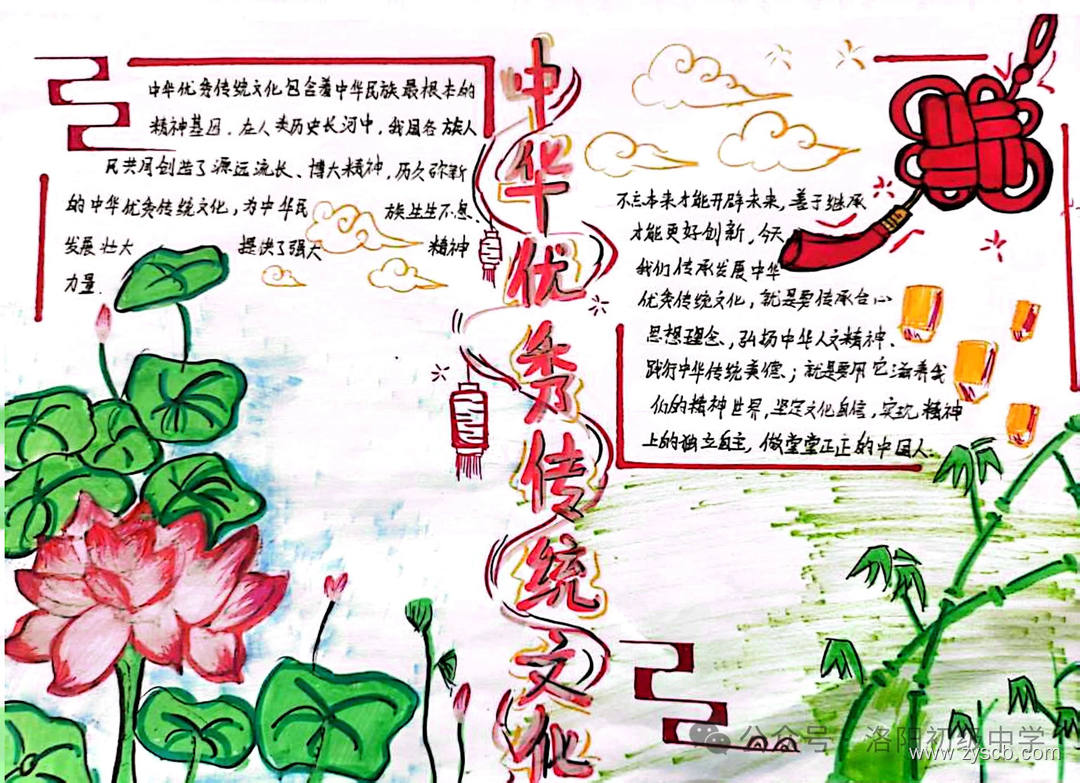 中华优秀传统文化包含着中华民族最根本的
精神基因。在人类历史长河中，我国各族人
民共同创造了源远流长、博大精神，历久弥新
的中华优秀传统文化，为中华民族生生不息、
发展壮大提供了强大精神
力量。
中华优秀传统文化
不忘本来才能开辟未来，善于继承
才能更好创新，今天
我们传承发展中华
优秀传统文化，就是要传承合心
思想理念、弘扬中华人文精神、
践行中华传统美德、；就是要用它滋养我
们的精神世界，坚定文化自信，实现精神
上的独立自主，做堂堂正正的中国人。
公众号 · 洛阳初级中学
www.zyscb.com